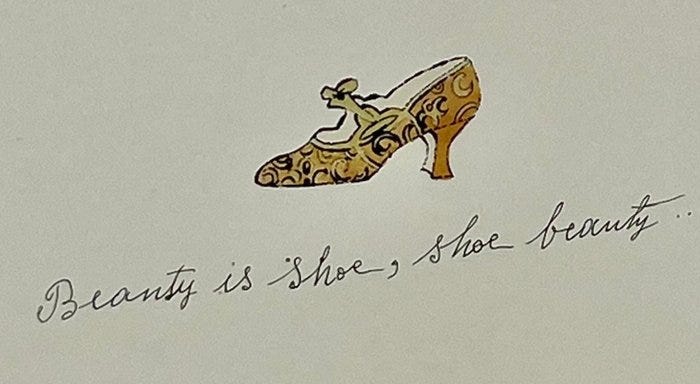 Beauty is shoe, shoe beauty..